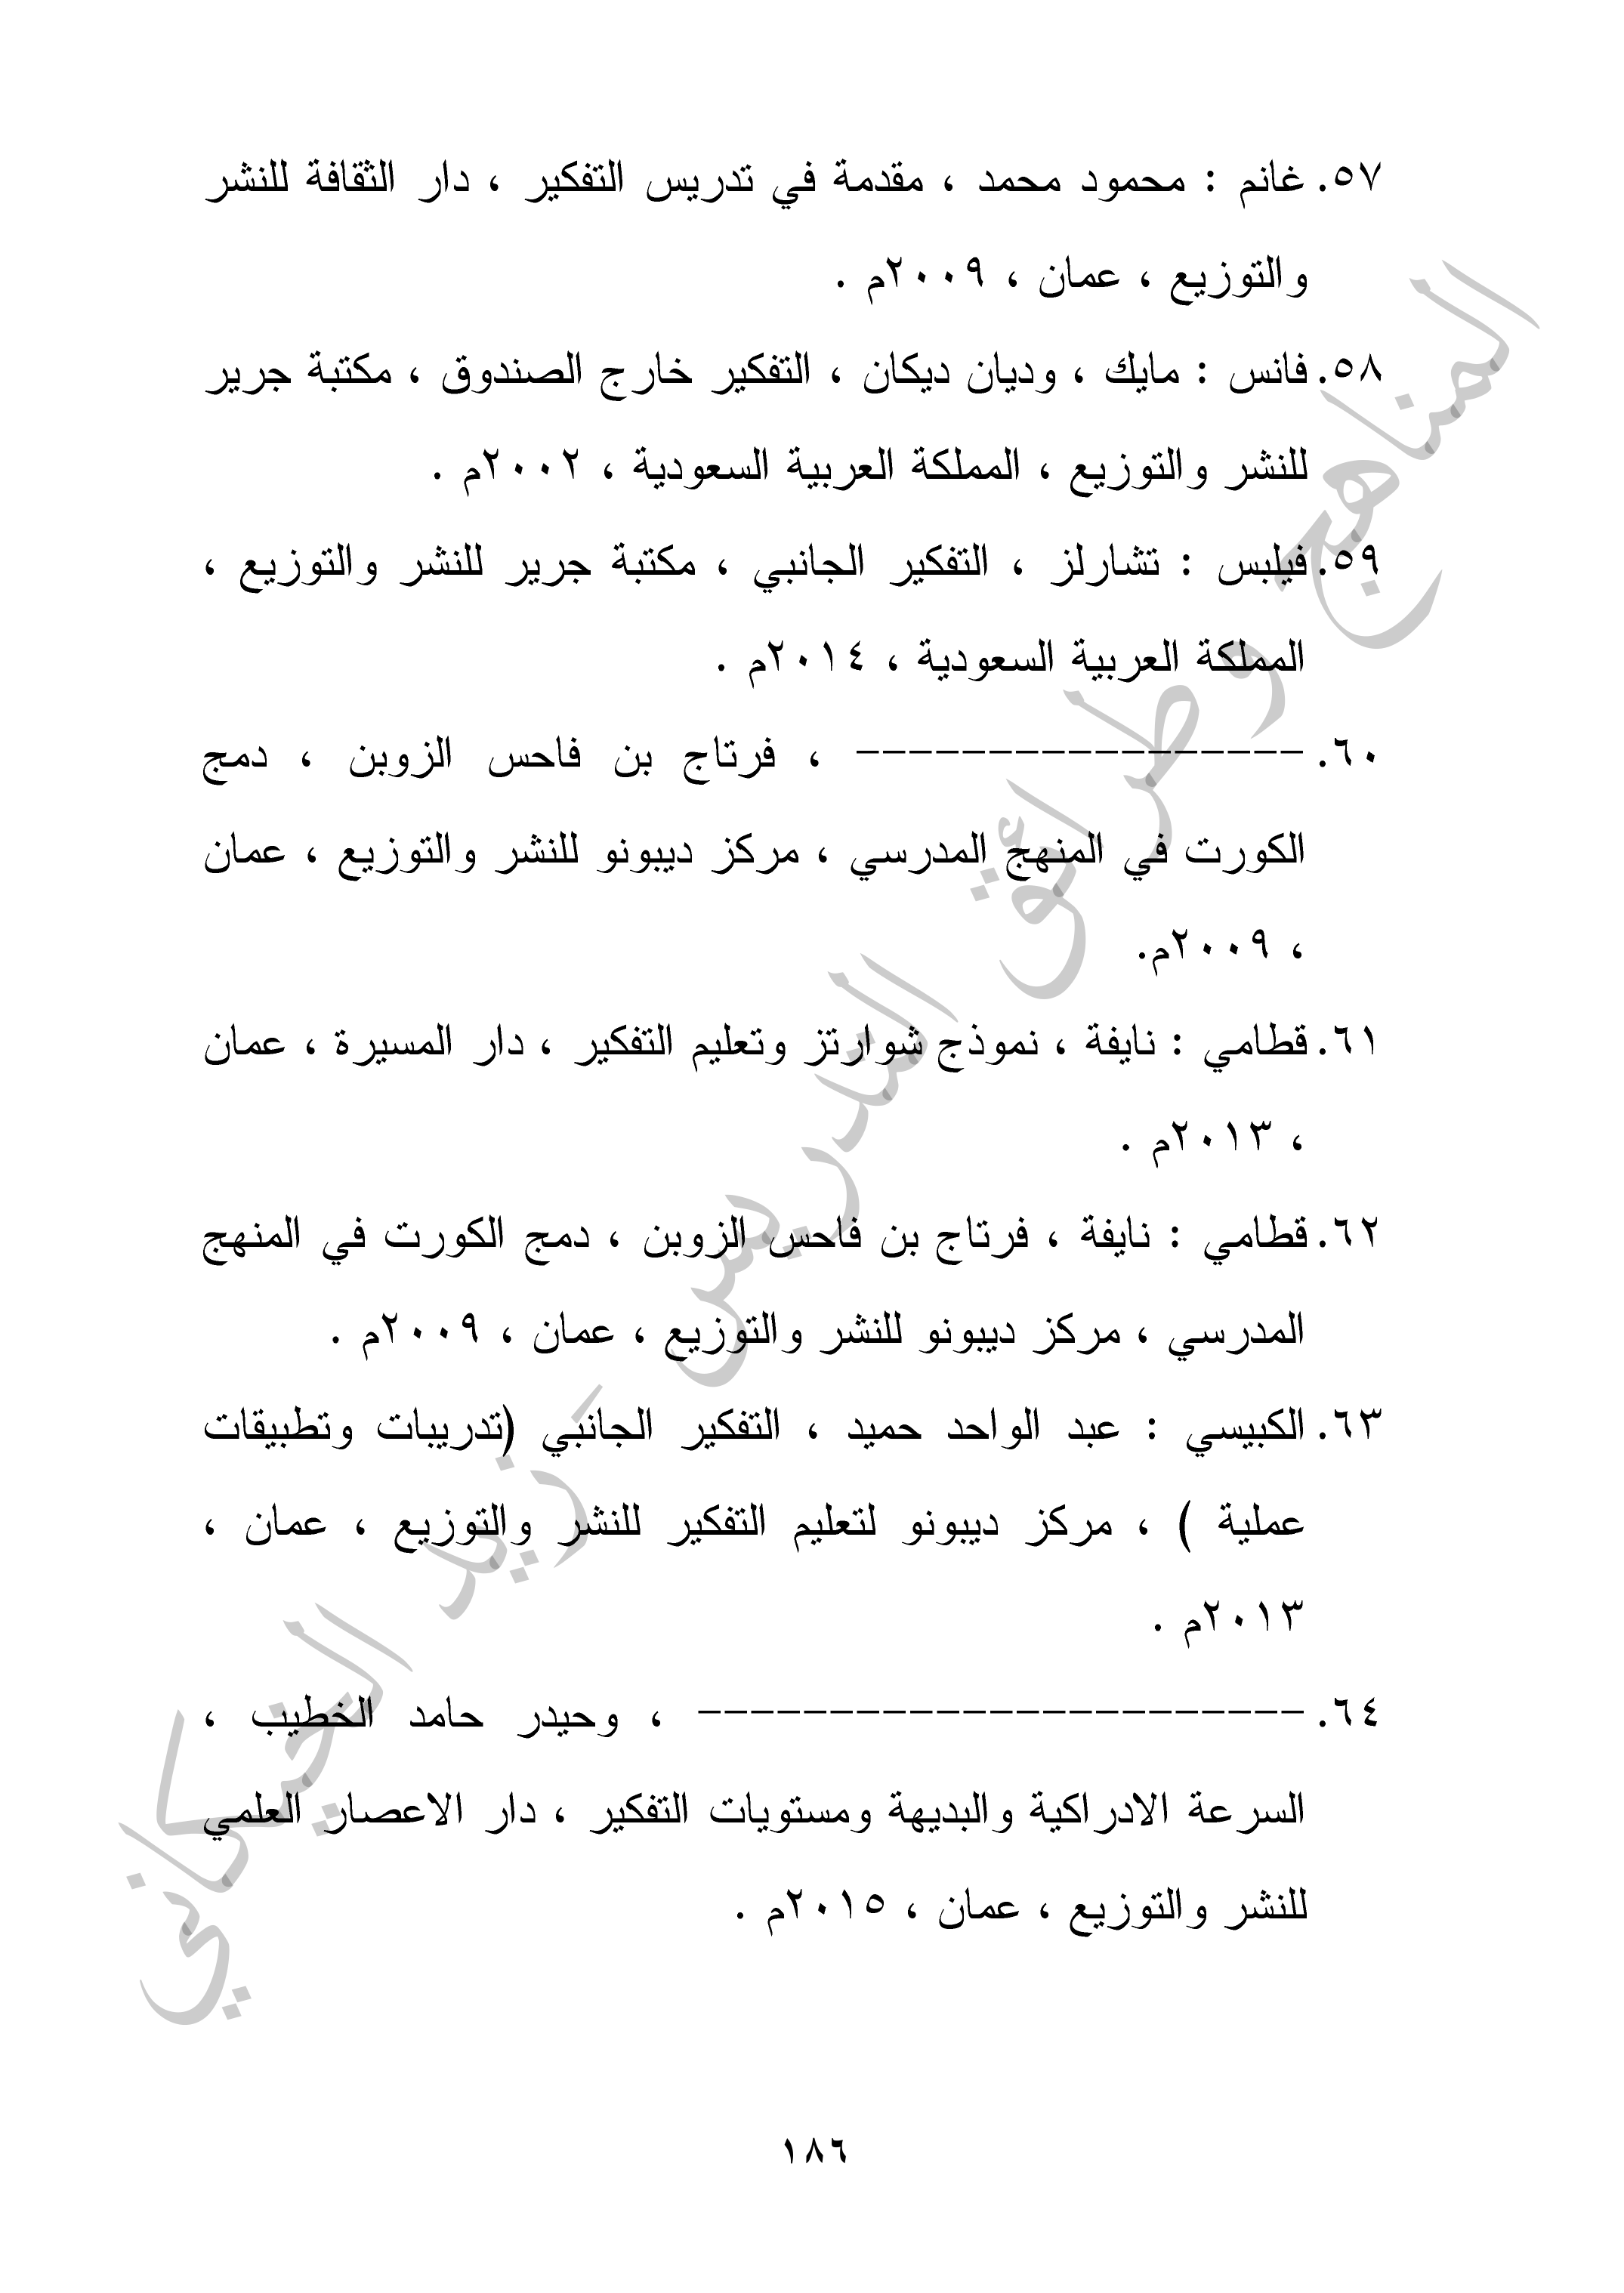 ٥٧. غانم : محمود محمد ، مقدمة في تدريس التفكير ، دار الثقافة للنشر
والتوزيع ، عمان ، ٢٠٠٩م .
٥٨. فانس : مايك ، وديان ديكان ، التفكير خارج الصندوق ، مكتبة جرير
للنشر والتوزيع ، المملكة العربية السعودية ، ٢٠٠٢م .
٥٩. فيلبس : تشارلز ، التفكير الجانبي ، مكتبة جرير للنشر والتوزيع ،
المملكة العربية السعودية ، ٢٠١٤م .
٦٠. ----------------- ، فرتاج بن فاحس الزوبن ، دمج
الكورت في المنهج المدرسي ، مركز ديبونو للنشر والتوزيع ، عمان
، ٢٠٠٩م.
٦١. قطامي : نايفة ، نموذج شوارتز وتعليم التفكير ، دار المسيرة ، عمان
، ٢٠١٣م .
٦٢. قطامي : نايفة ، فرتاج بن فاحس الزوبن ، دمج الكورت في المنهج
المدرسي ، مركز ديبونو للنشر والتوزيع ، عمان ، ٢٠٠٩م .
٦٣. الكبيسي : عبد الواحد حميد ، التفكير الجانبي (تدريبات وتطبيقات
عملية ) ، مركز ديبونو لتعليم التفكير للنشر والتوزيع ، عمان ،
٢٠١٣م .
٦٤. ----------------------- ، وحيدر حامد الخطيب ،
السرعة الادراكية والبديهة ومستويات التفكير ، دار الاعصار العلمي
للنشر والتوزيع ، عمان ، ٢٠١٥م .
المناهج وطرائق التدريس - زيد الخيكاني
١٨٦